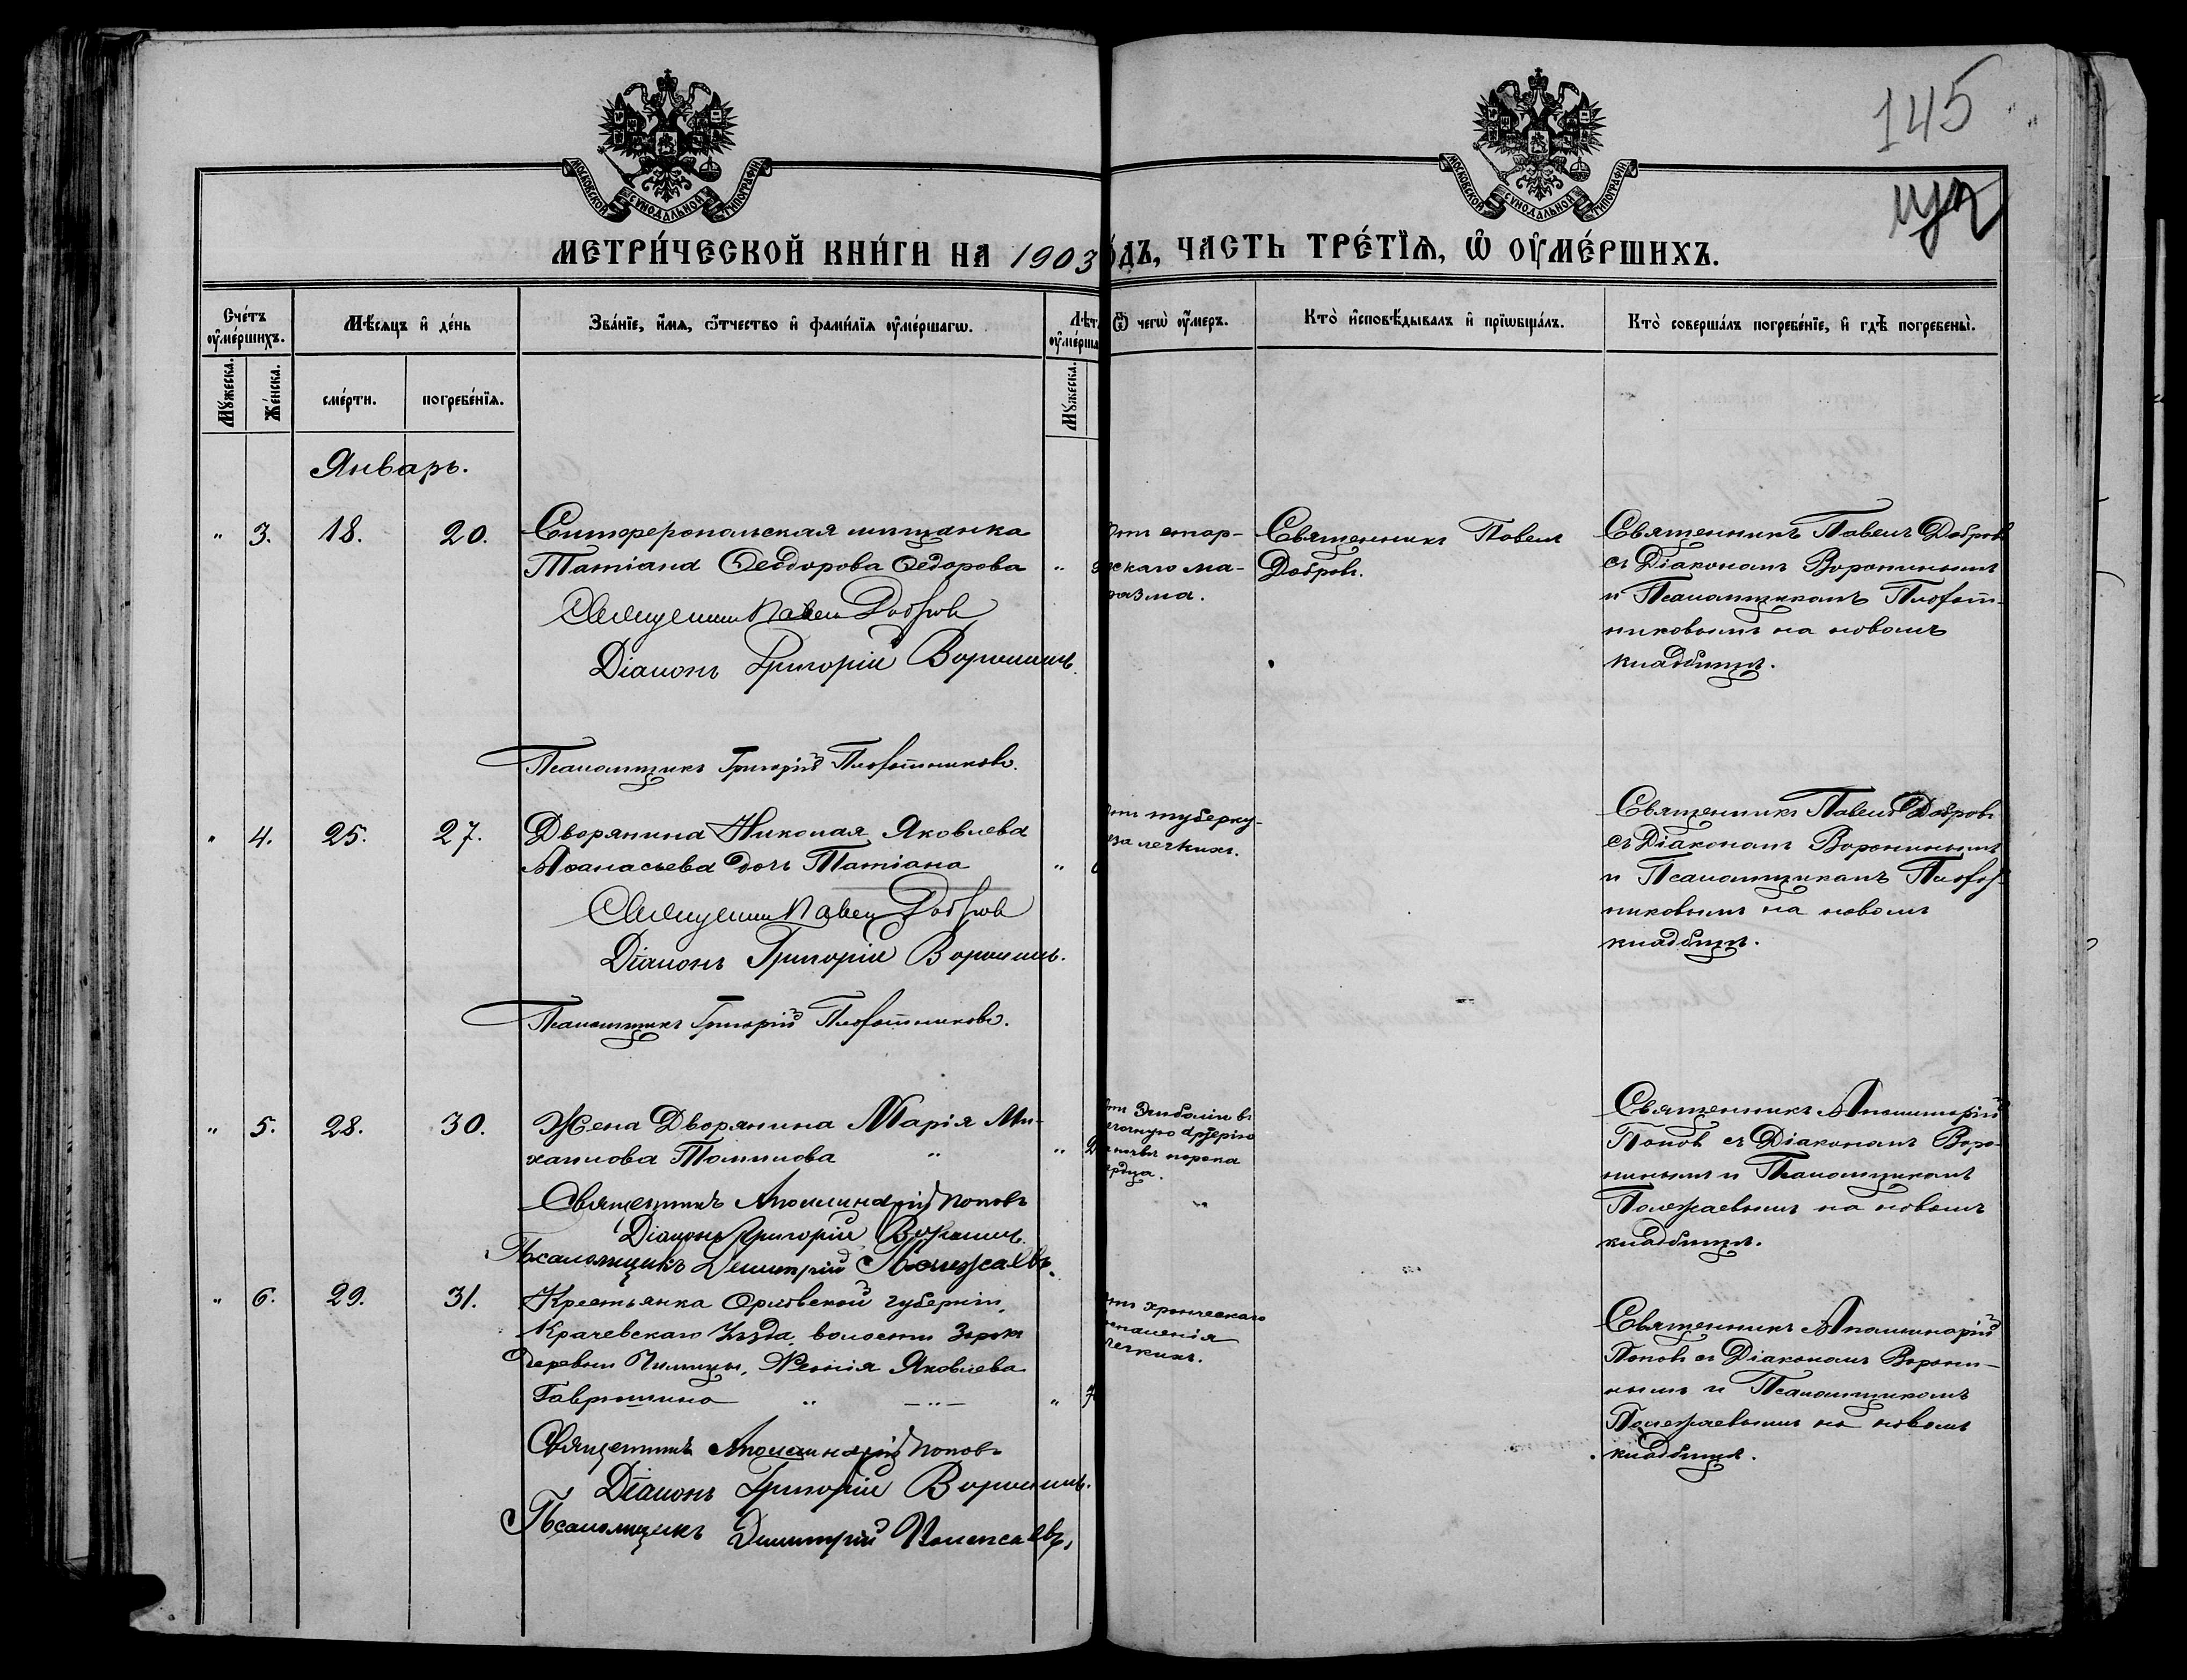 145
МОСКОВСКОЙ СѴНОДАЛЬНОЙ ТИПОГРАФІИ
МОСКОВСКОЙ СѴНОДАЛЬНОЙ ТИПОГРАФІИ
МЕТРИ́ЧЕСКОЙ КНИ́ГИ НА 1903 ѺДЪ, ЧАСТЬ ТРЕ́ТІѦ, Ѡ ОУ҆МЕ́РШИХЪ.
Сче́тъ оу҆ме́ршихъ.
Мѣ́сяцъ и҆ де́нь
Зва́нїе, и҆́мѧ, ѻ҆́тчество и҆ фами́лїѧ оу҆ме́ршагѡ.
Лѣт
оу҆ме́рша
Ѿ чегѡ̀ оу҆́меръ.
Кто̀ и҆сповѣ́дывалъ и҆ прїѡбща́лъ.
Кто̀ соверша́лъ погребе́нїе, и҆ гдѣ̀ погребены̀.
Мꙋ́жеска.
Же́нска.
сме́рти.
погребе́нїѧ.
Мꙋ́жеска.
Январь.
" 3. 18. 20.
Симферопольская мѣщанка
Татіана Ѳеодорова Ѳедорова "
Священникъ Павелъ Добровъ
Діаконъ Григорій Воронинъ.
Псаломщикъ Григорій Плотниковъ.
отъ стар-
ческаго ма-
разма.
Священникъ Павелъ
Добровъ.
Священникъ Павелъ Добровъ
съ Діакономъ Воронинымъ
и Псаломщикомъ Плот-
никовымъ на новомъ
кладбищѣ.
" 4. 25. 27.
Дворянина Николая Яковлева
Аѳанасьева дочь Татіана "
Священникъ Павелъ Добровъ
Діаконъ Григорій Воронинъ.
Псаломщикъ Григорій Плотниковъ.
отъ туберку-
леза легкихъ.
Священникъ Павелъ Добровъ
съ Діакономъ Воронинымъ
и Псаломщикомъ Плот-
никовымъ на новомъ
кладбищѣ.
" 5. 28. 30.
Жена Дворянина Марія Ми-
хаилова Томилова " "
Священникъ Аполлинарій Поповъ
Діаконъ Григорій Воронинъ.
Псаломщикъ Димитрій Полежаевъ.
отъ Эмболіи въ
легочную артерію
порока
сердца.
Священникъ Аполлинарій
Поповъ съ Діакономъ Воро-
нинымъ и Псаломщикомъ
Полежаевымъ на новомъ
кладбищѣ.
" 6. 29. 31.
Крестьянка Орловской губерніи,
Крачевскаго Уѣзда, волости
деревни Ксенія Яковлева
Гаврюшина " —"— "
Священникъ Аполлинарій Поповъ
Діаконъ Григорій Воронинъ.
Псаломщикъ Димитрій Полежаевъ,
отъ хроническаго
воспаленія
легкихъ.
Священникъ Аполлинарій
Поповъ съ Діакономъ Ворони-
нымъ и Псаломщикомъ
Полежаевымъ на новомъ
кладбищѣ.